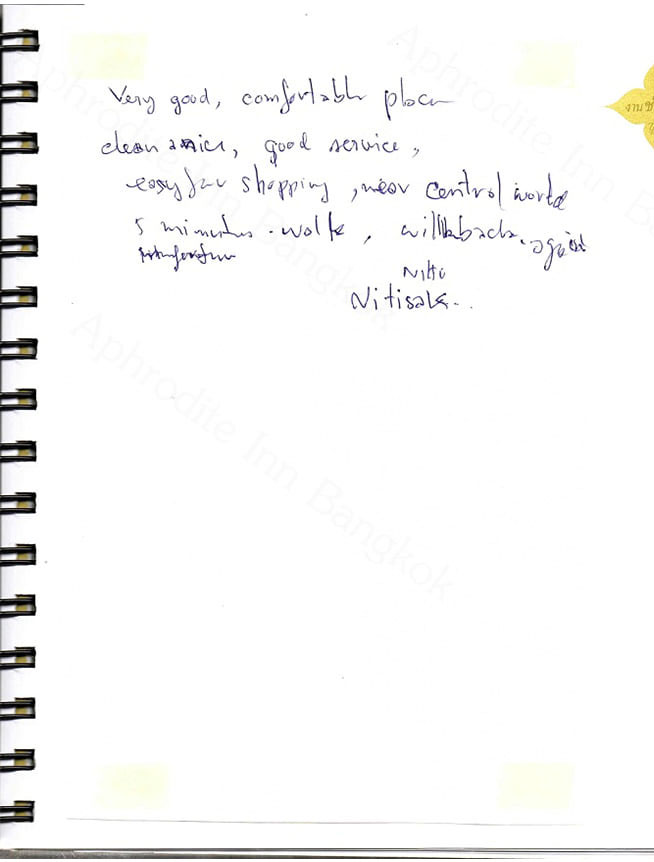 Very good, comfortable place
clean & nice, good service,
easy for shopping, near central world
5 minutes walk, will back again
Nitisak..
Aphrodite Inn Bangkok
Aphrodite Inn Bangkok
Aphrodite Inn Ba
งาน